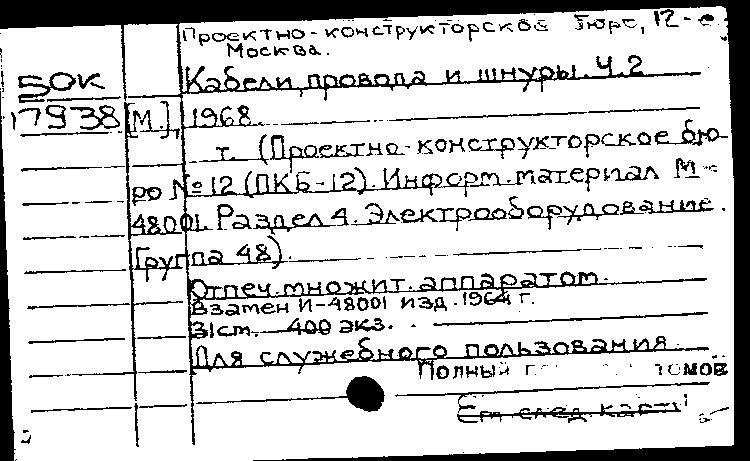 Проектно-конструкторское бюро, 12-е
Москва.
50К Кабели, провода и шнуры. Ч.2
17938 [М.], 1968.
т. (Проектно-конструкторское бю-
ро №12 (ПКБ-12). Информ. материал М-
48001. Раздел 4. Электрооборудование.
Группа 48).
Отпеч. множит. аппаратом.
Взамен И-48001 изд. 1964 г.
31 ст. 400 экз.
Для служебного пользования.
Полный томов
См. след. карт